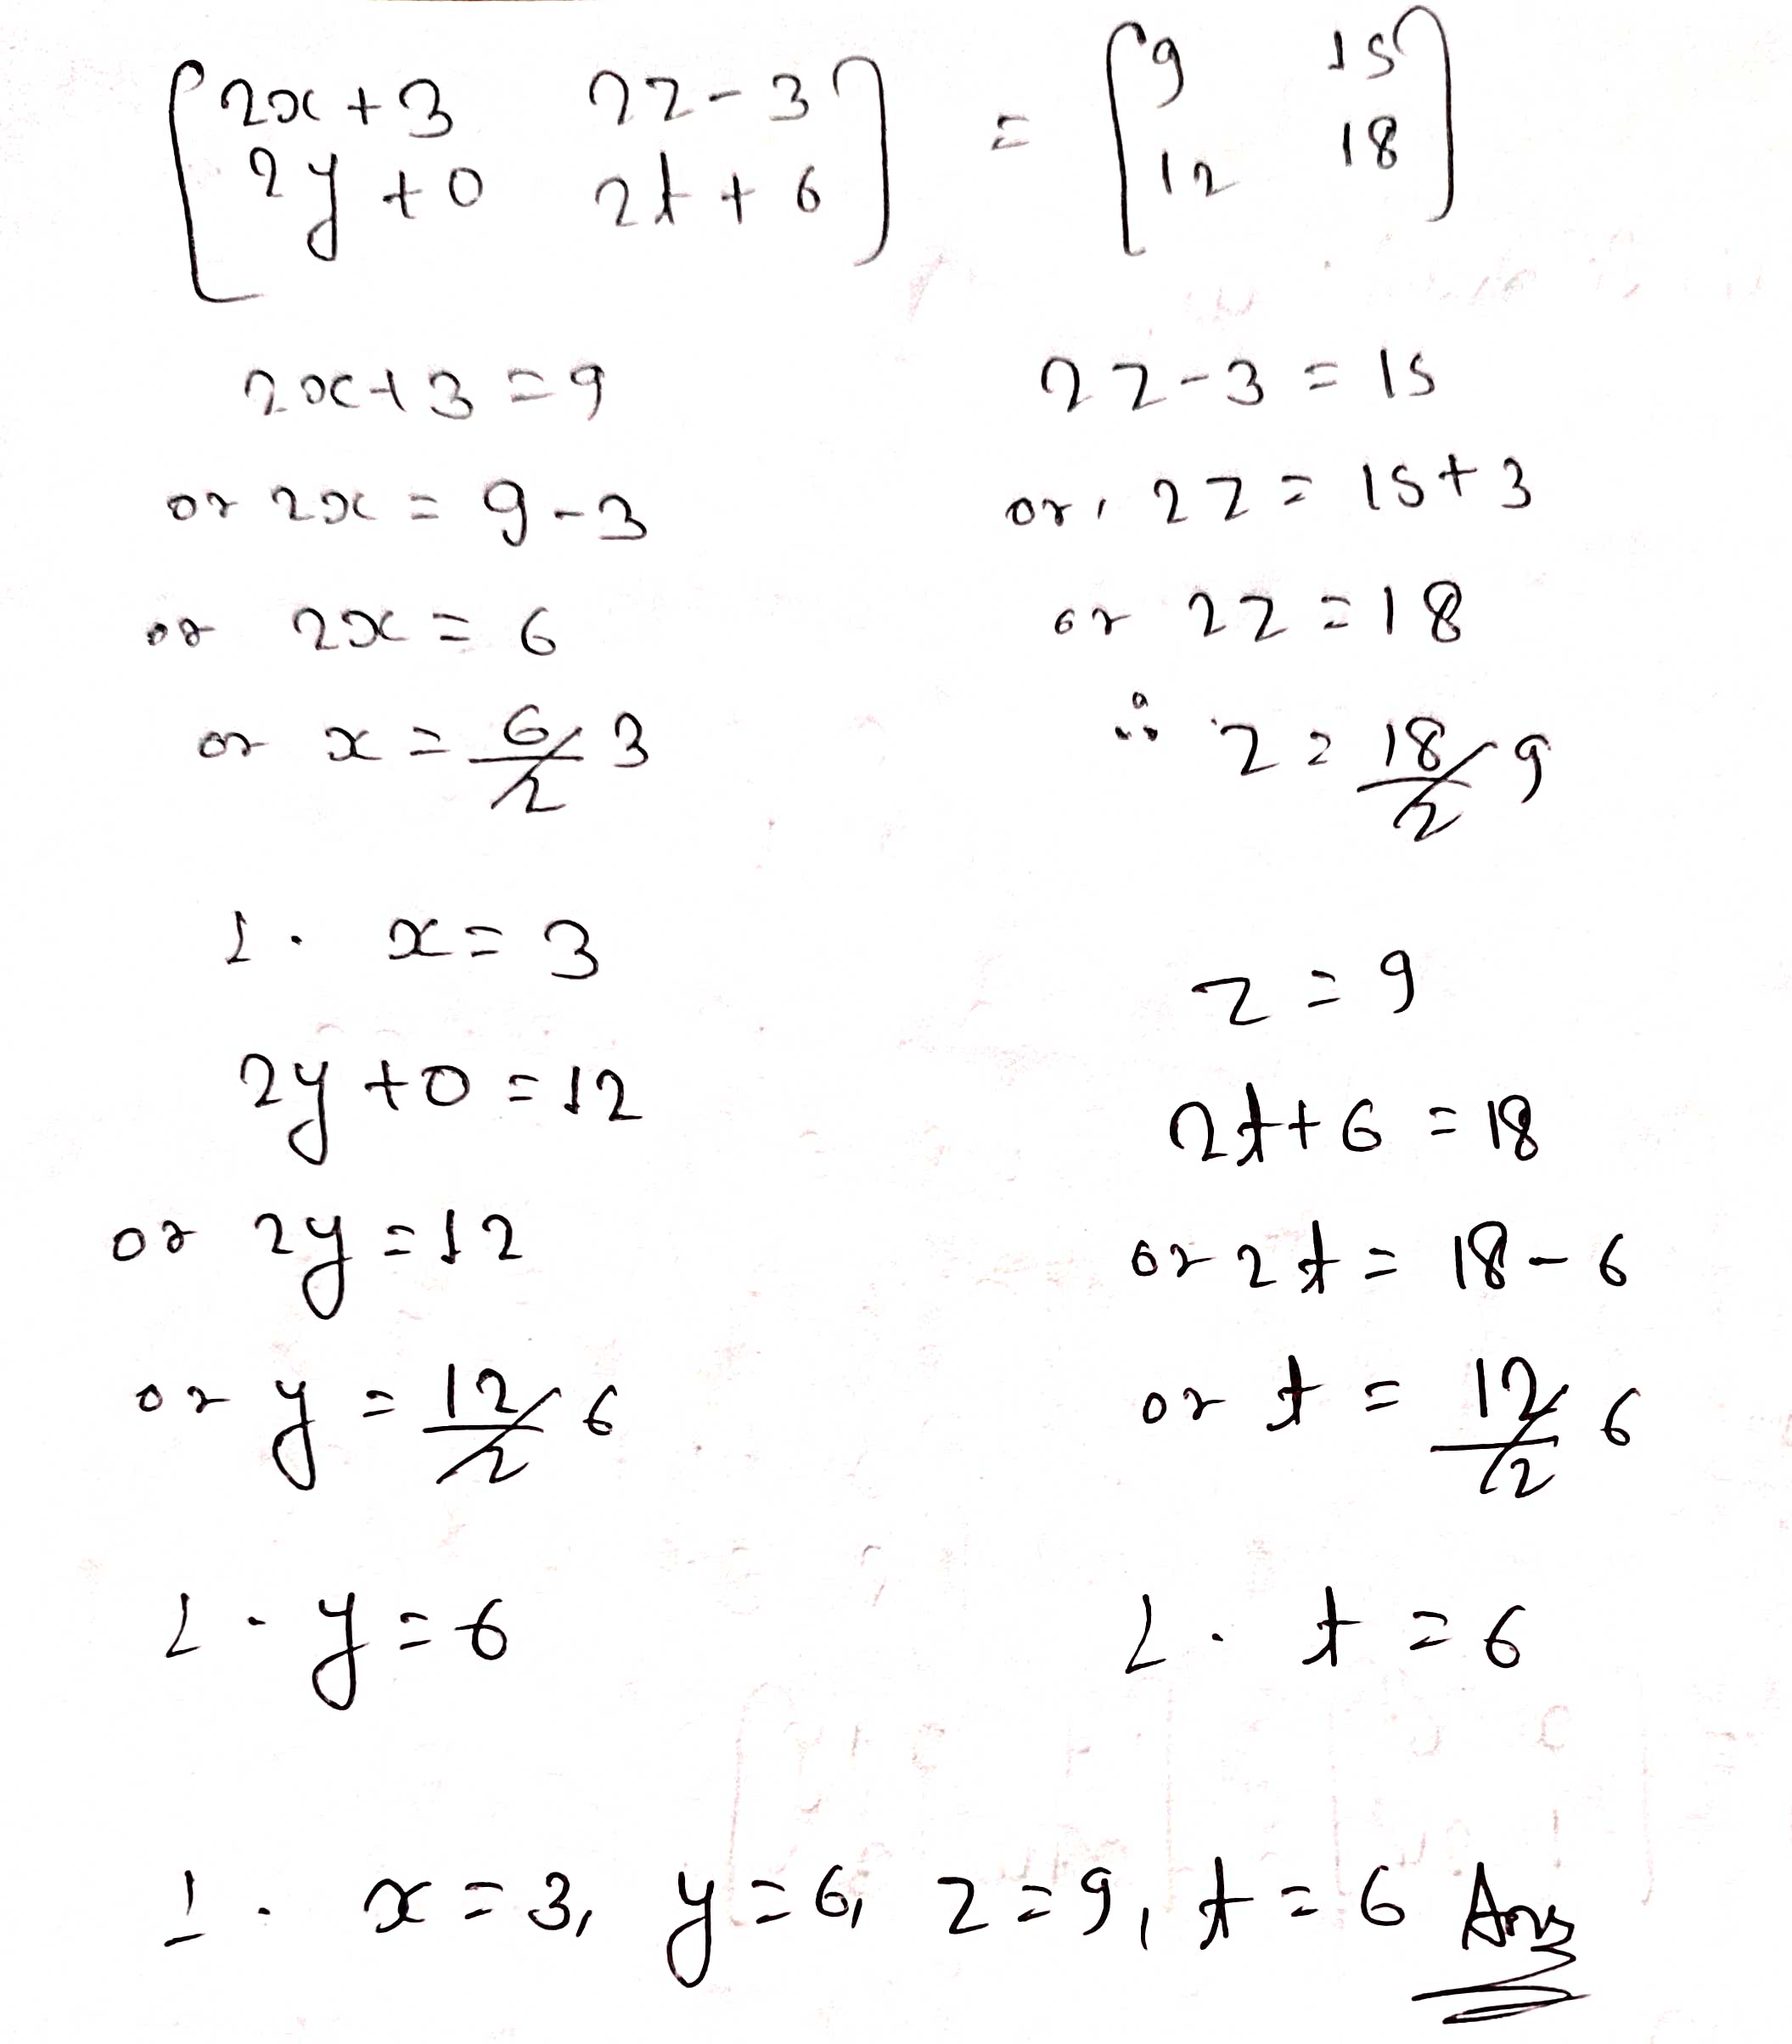 [2x+3 2z-3] = [9 15]
[2y+0 2t+6] [12 18]
2x+3=9
or 2x = 9-3
or 2x = 6
or x = 6/2 3
∴ x = 3
2y+0=12
or 2y=12
or y = 12/2 6
∴ y=6
2z-3=15
or, 2z=15+3
or 2z=18
∴ z = 18/2 9
z=9
2t+6=18
or 2t= 18-6
or t = 12/2 6
∴ t=6
∴ x=3, y=6, z=9, t=6 Ans